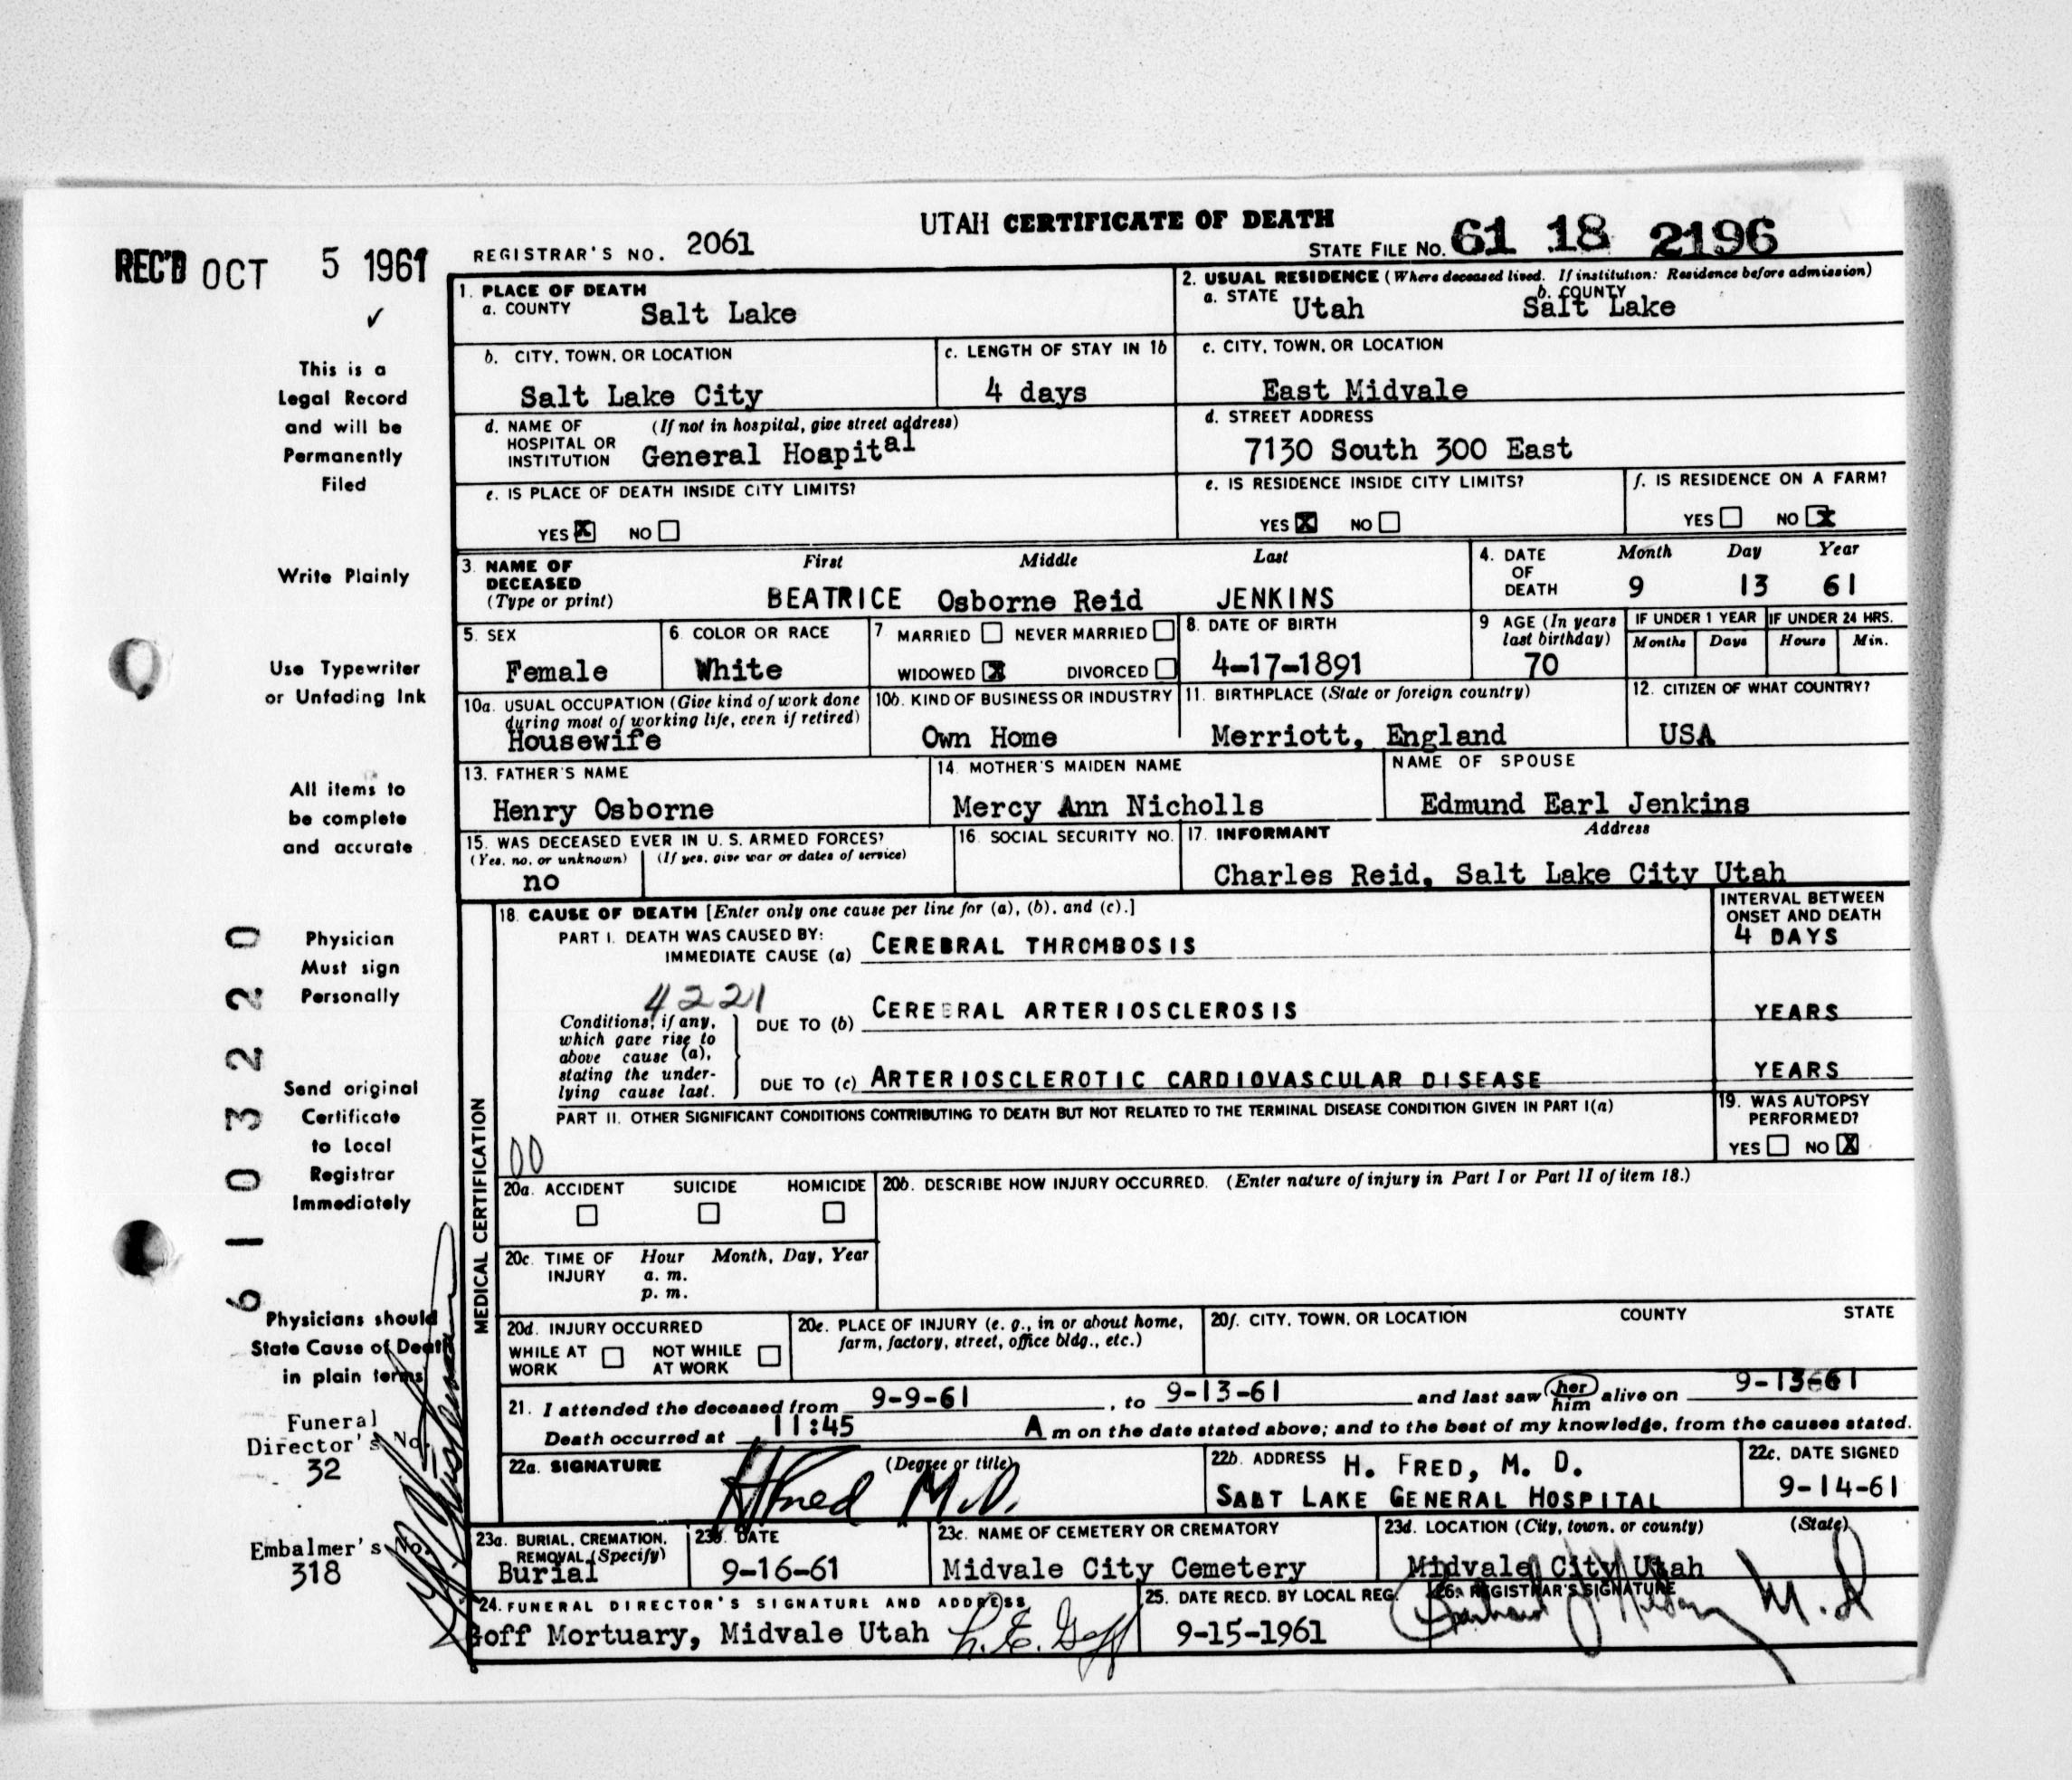 UTAH CERTIFICATE OF DEATH
REC'D OCT 5 1961
REGISTRAR'S NO. 2061
STATE FILE NO. 61 18 2196
✓
This is a
Legal Record
and will be
Permanently
Filed
Write Plainly
Use Typewriter
or Unfading Ink
All items to
be complete
and accurate
Physician
Must sign
Personally
Send original
Certificate
to Local
Registrar
Immediately
Physicians should
State Cause of Death
in plain terms
Funeral
Director's No.
32
Embalmer's No.
318
6103220
1. PLACE OF DEATH
a. COUNTY Salt Lake
2. USUAL RESIDENCE (Where deceased lived. If institution: Residence before admission)
a. STATE Utah b. COUNTY Salt Lake
b. CITY, TOWN, OR LOCATION
Salt Lake City
c. LENGTH OF STAY IN 1b
4 days
c. CITY, TOWN, OR LOCATION
East Midvale
d. NAME OF HOSPITAL OR INSTITUTION (If not in hospital, give street address)
General Hoapital
d. STREET ADDRESS
7130 South 300 East
e. IS PLACE OF DEATH INSIDE CITY LIMITS?
YES X NO
e. IS RESIDENCE INSIDE CITY LIMITS?
YES X NO
f. IS RESIDENCE ON A FARM?
YES NO X
3. NAME OF DECEASED (Type or print)
First Middle Last
BEATRICE Osborne Reid JENKINS
4. DATE OF DEATH
Month Day Year
9 13 61
5. SEX
Female
6. COLOR OR RACE
White
7 MARRIED NEVER MARRIED
WIDOWED X DIVORCED
8. DATE OF BIRTH
4-17-1891
9 AGE (In years last birthday)
70
IF UNDER 1 YEAR
Months Days
IF UNDER 24 HRS.
Hours Min.
10a. USUAL OCCUPATION (Give kind of work done during most of working life, even if retired)
Housewife
10b. KIND OF BUSINESS OR INDUSTRY
Own Home
11. BIRTHPLACE (State or foreign country)
Merriott, England
12. CITIZEN OF WHAT COUNTRY?
USA
13. FATHER'S NAME
Henry Osborne
14. MOTHER'S MAIDEN NAME
Mercy Ann Nicholls
NAME OF SPOUSE
Edmund Earl Jenkins
15. WAS DECEASED EVER IN U. S. ARMED FORCES?
(Yes, no, or unknown) (If yes, give war or dates of service)
no
16. SOCIAL SECURITY NO.
17. INFORMANT Address
Charles Reid, Salt Lake City Utah
MEDICAL CERTIFICATION
18. CAUSE OF DEATH [Enter only one cause per line for (a), (b), and (c).]
INTERVAL BETWEEN ONSET AND DEATH
PART I. DEATH WAS CAUSED BY:
IMMEDIATE CAUSE (a) CEREBRAL THROMBOSIS 4 DAYS
4221
Conditions, if any, which gave rise to above cause (a), stating the underlying cause last.
DUE TO (b) CEREBRAL ARTERIOSCLEROSIS YEARS
DUE TO (c) ARTERIOSCLEROTIC CARDIOVASCULAR DISEASE YEARS
PART II. OTHER SIGNIFICANT CONDITIONS CONTRIBUTING TO DEATH BUT NOT RELATED TO THE TERMINAL DISEASE CONDITION GIVEN IN PART I(a)
00
19. WAS AUTOPSY PERFORMED?
YES NO X
20a. ACCIDENT SUICIDE HOMICIDE
20b. DESCRIBE HOW INJURY OCCURRED. (Enter nature of injury in Part I or Part II of item 18.)
20c. TIME OF INJURY Hour Month, Day, Year
a. m.
p. m.
20d. INJURY OCCURRED
WHILE AT WORK NOT WHILE AT WORK
20e. PLACE OF INJURY (e. g., in or about home, farm, factory, street, office bldg., etc.)
20f. CITY, TOWN, OR LOCATION COUNTY STATE
21. I attended the deceased from 9-9-61, to 9-13-61 and last saw her him alive on 9-13-61
Death occurred at 11:45 A m on the date stated above; and to the best of my knowledge, from the causes stated.
22a. SIGNATURE (Degree or title)
H Fred M.D.
22b. ADDRESS H. FRED, M. D.
SALT LAKE GENERAL HOSPITAL
22c. DATE SIGNED
9-14-61
23a. BURIAL, CREMATION, REMOVAL (Specify)
Burial
23b. DATE
9-16-61
23c. NAME OF CEMETERY OR CREMATORY
Midvale City Cemetery
23d. LOCATION (City, town, or county) (State)
Midvale City Utah
24. FUNERAL DIRECTOR'S SIGNATURE AND ADDRESS
Goff Mortuary, Midvale Utah L. E. Goff
25. DATE RECD. BY LOCAL REG.
9-15-1961
26. REGISTRAR'S SIGNATURE
M.D